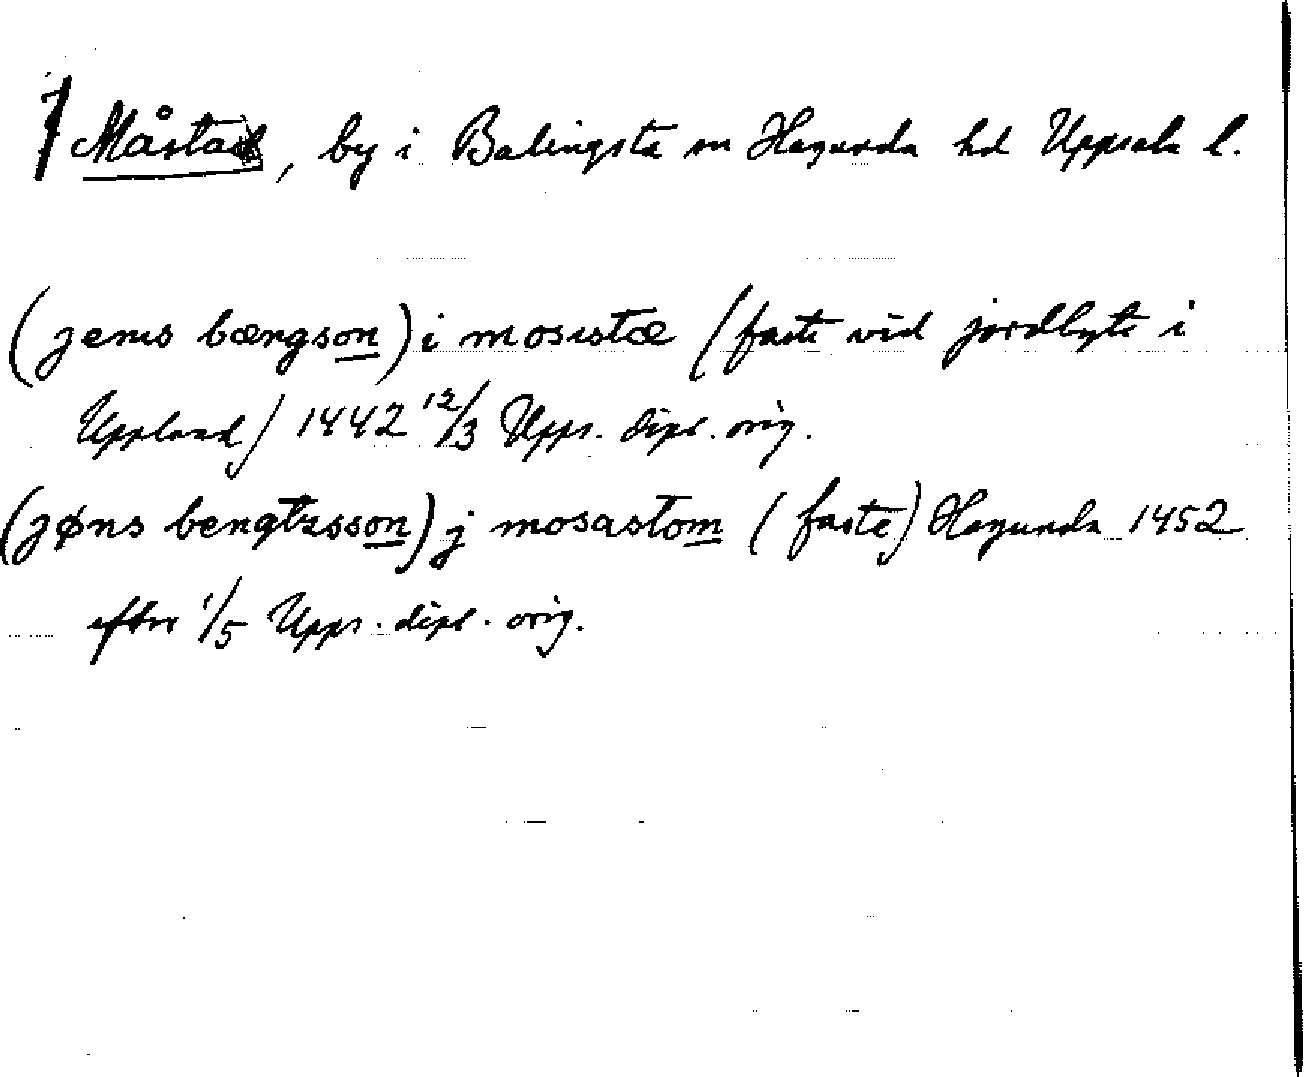 Måstad, by i Balingsta sn Hagunda hd Uppsala l.
(jenis bængson) i mosistæ (faste vid jordbyte i
Uppland) 1442 12/3 Upps. dipl. orig.
(jøns bengtzsson) j mosastom (faste) Hagunda 1452
efter 1/5 Upps. dipl. orig.